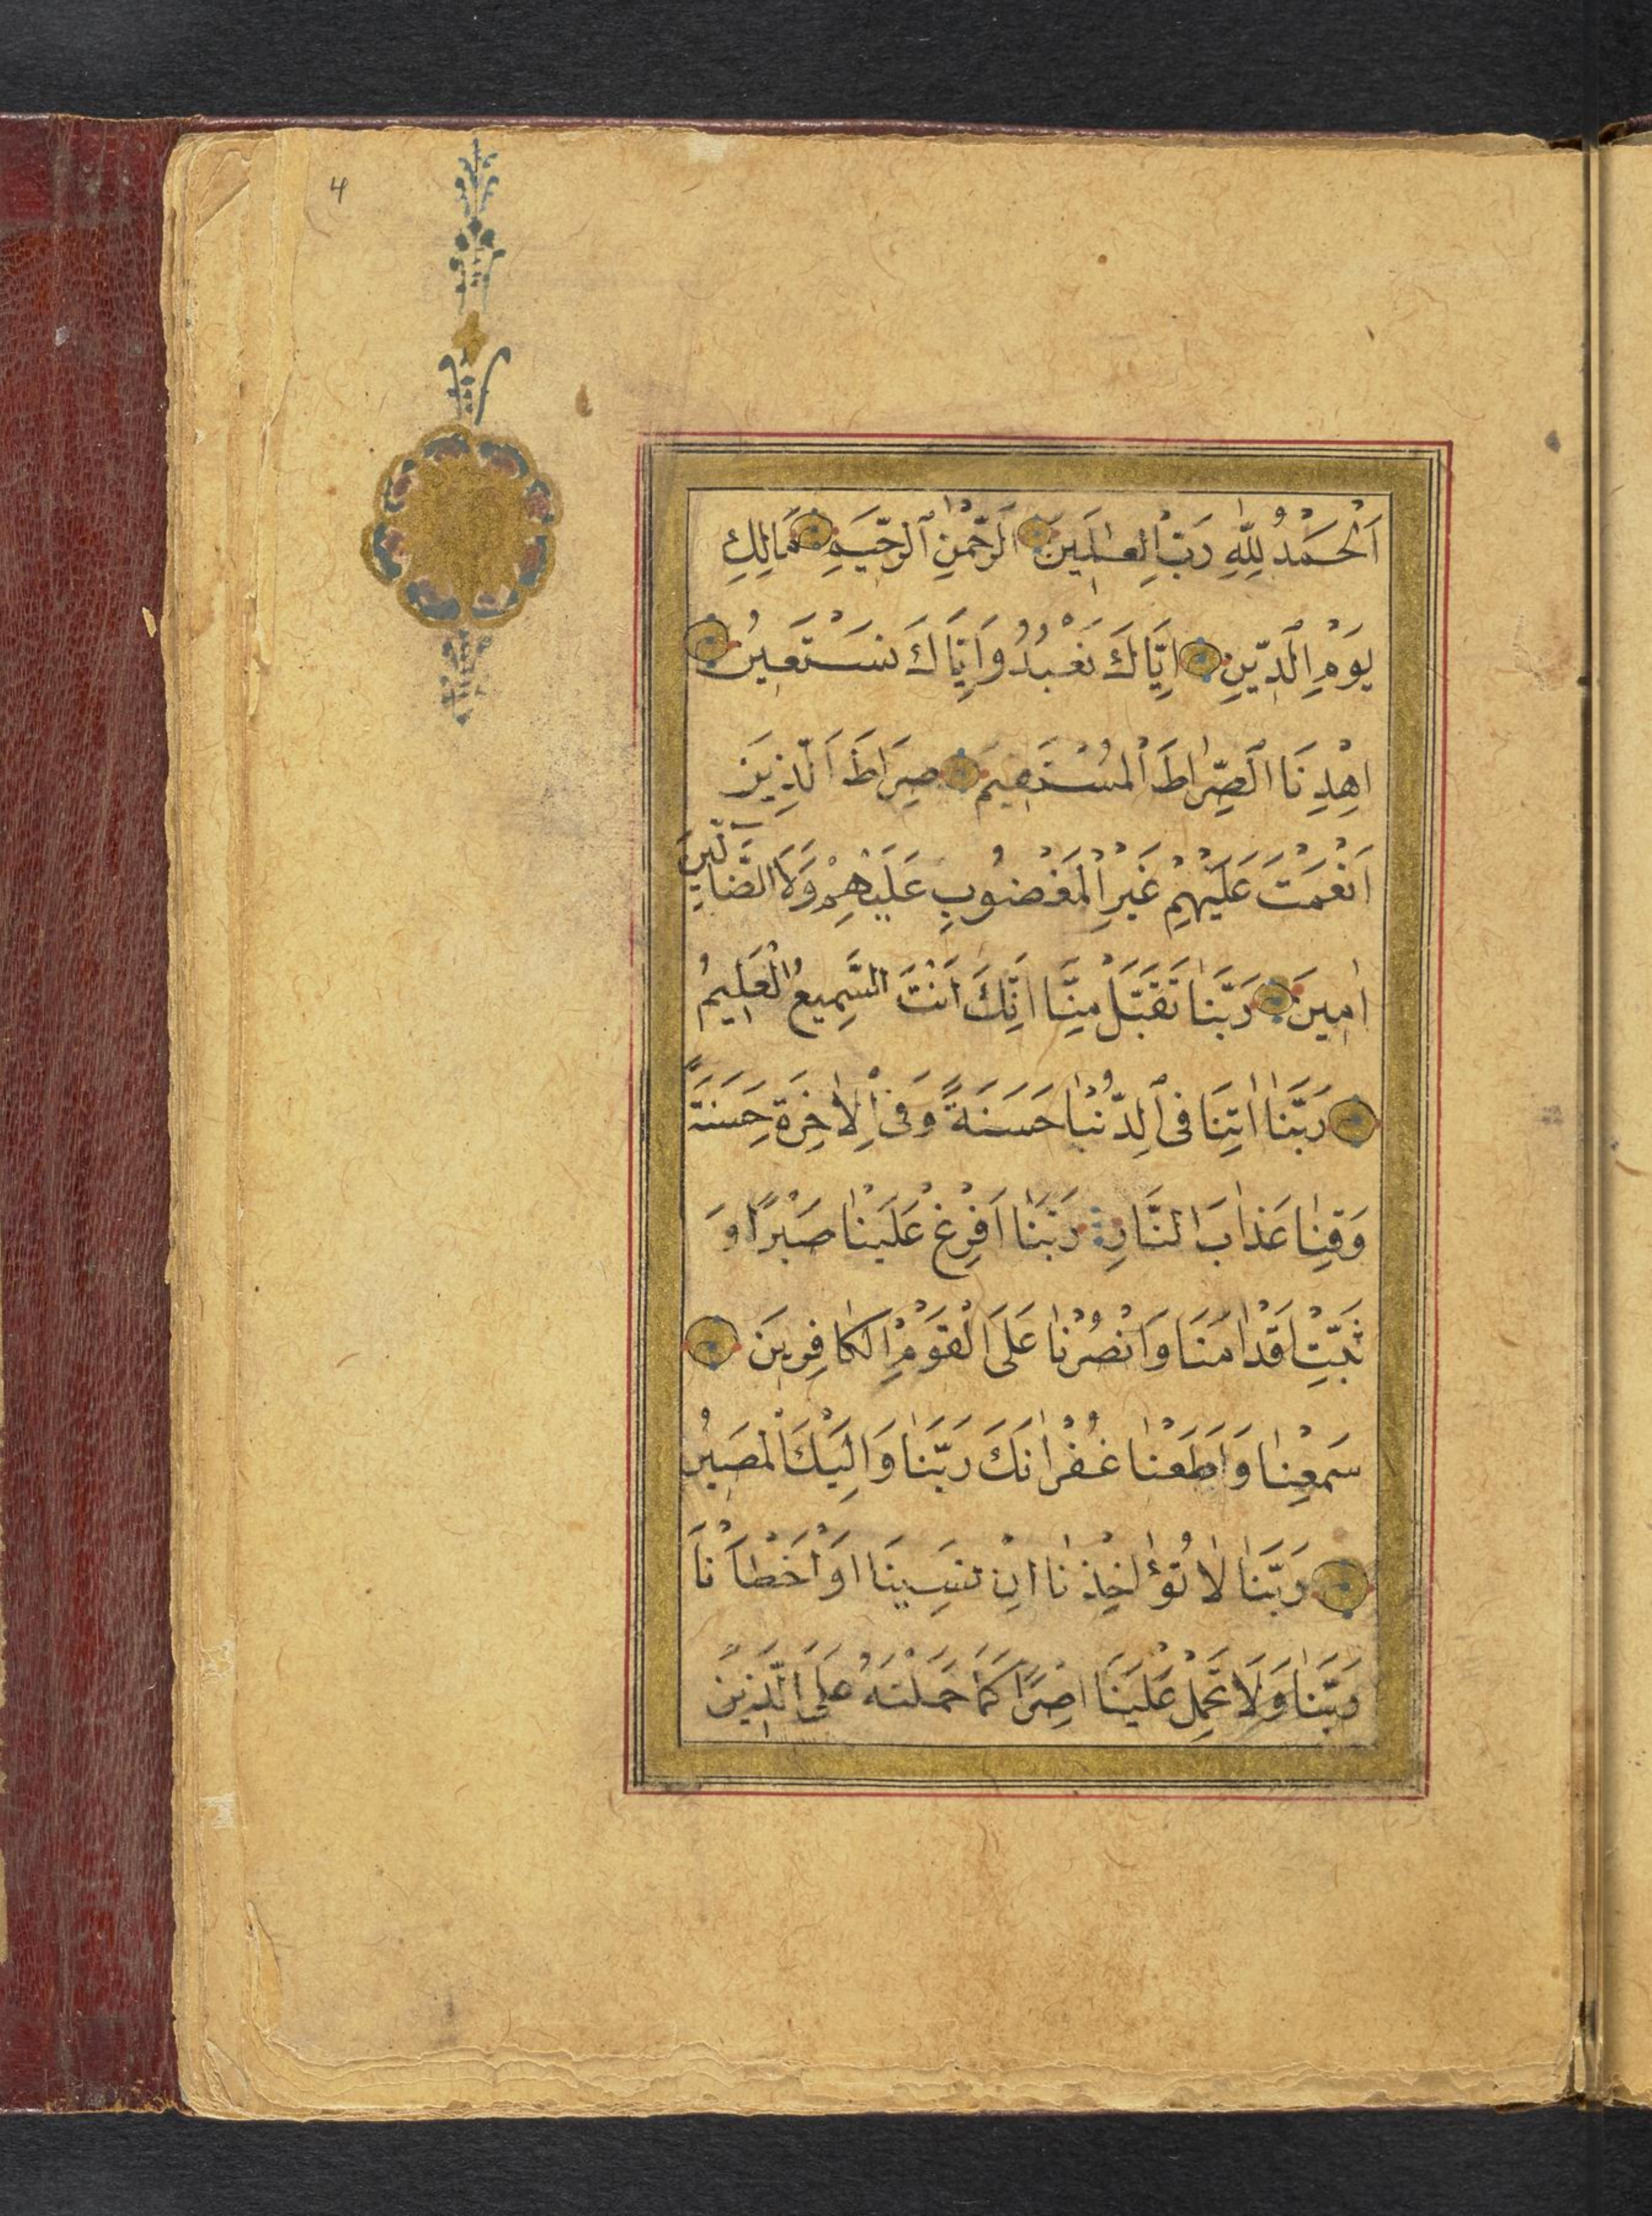 4
اَلْحَمْدُ لِلّٰهِ رَبِّ الْعٰلَمِينَ اَلرَّحْمٰنِ الرَّحِيمِ مَالِكِ
يَوْمِ الدِّينِ اِيَّاكَ نَعْبُدُ وَاِيَّاكَ نَسْتَعِينُ
اِهْدِنَا الصِّرَاطَ الْمُسْتَقِيمَ صِرَاطَ الَّذِينَ
اَنْعَمْتَ عَلَيْهِمْ غَيْرِ الْمَغْضُوبِ عَلَيْهِمْ وَلَا الضَّالِّينَ
اٰمِينَ رَبَّنَا تَقَبَّلْ مِنَّا اِنَّكَ اَنْتَ السَّمِيعُ الْعَلِيمُ
رَبَّنَا اٰتِنَا فِى الدُّنْيَا حَسَنَةً وَفِى الْاٰخِرَةِ حَسَنَةً
وَقِنَا عَذَابَ النَّارِ رَبَّنَا اَفْرِغْ عَلَيْنَا صَبْرًا وَ
ثَبِّتْ اَقْدَامَنَا وَانْصُرْنَا عَلَى الْقَوْمِ الْكَافِرِينَ
سَمِعْنَا وَاَطَعْنَا غُفْرَانَكَ رَبَّنَا وَاِلَيْكَ الْمَصِيرُ
رَبَّنَا لَا تُؤَاخِذْنَا اِنْ نَسِينَا اَوْ اَخْطَأْنَا
رَبَّنَا وَلَا تَحْمِلْ عَلَيْنَا اِصْرًا كَمَا حَمَلْتَهُ عَلَى الَّذِينَ